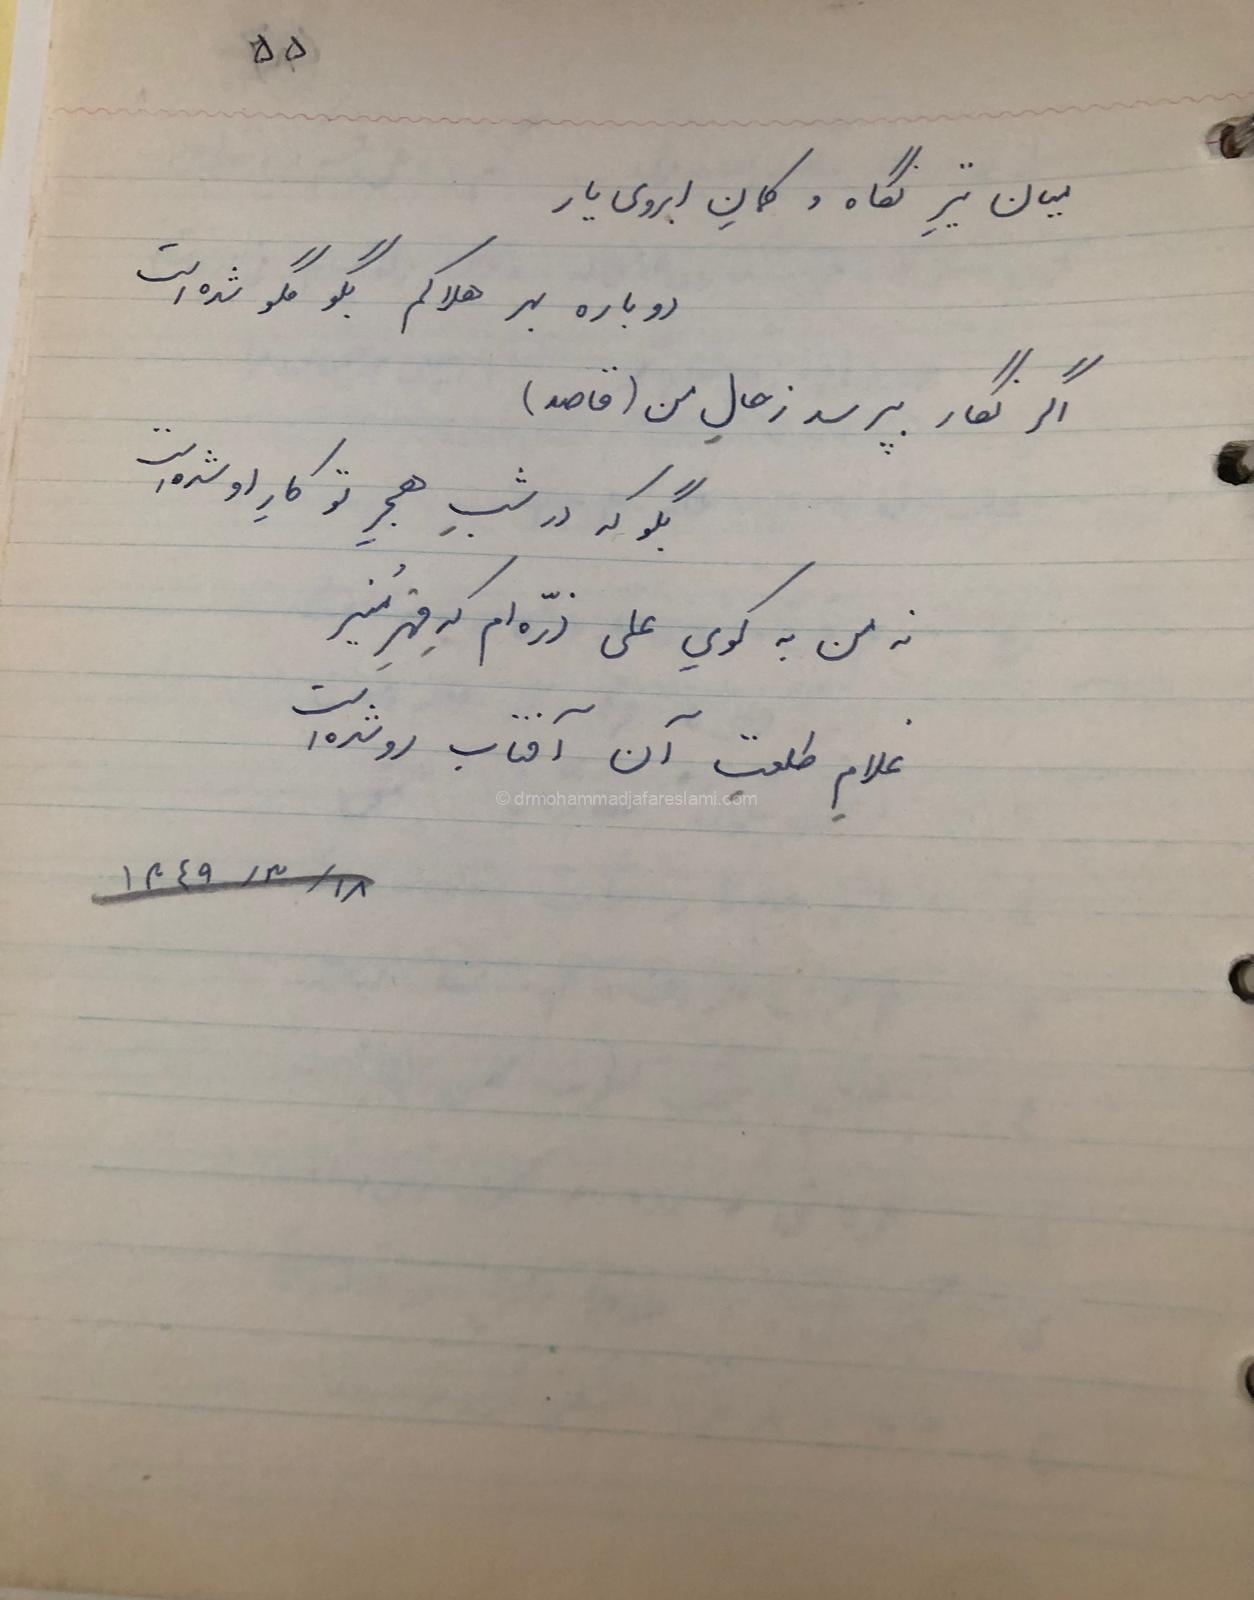 ۵۵
میان تیرِ نگاه و کمانِ ابروی یار
دوباره بهر هلاکم بگو مگو شده است
اگر نگار بپرسد ز حالِ من (قاصد)
بگو که در شبِ هجرِ تو کارِ او شده است
نه من به کویِ علی ذرّه‌ام که مِهرِ مُنیر
غلامِ طلعتِ آن آفتاب رو شده است
© drmohammadjafareslami.com
۱۳۴۹/۳/۱۸